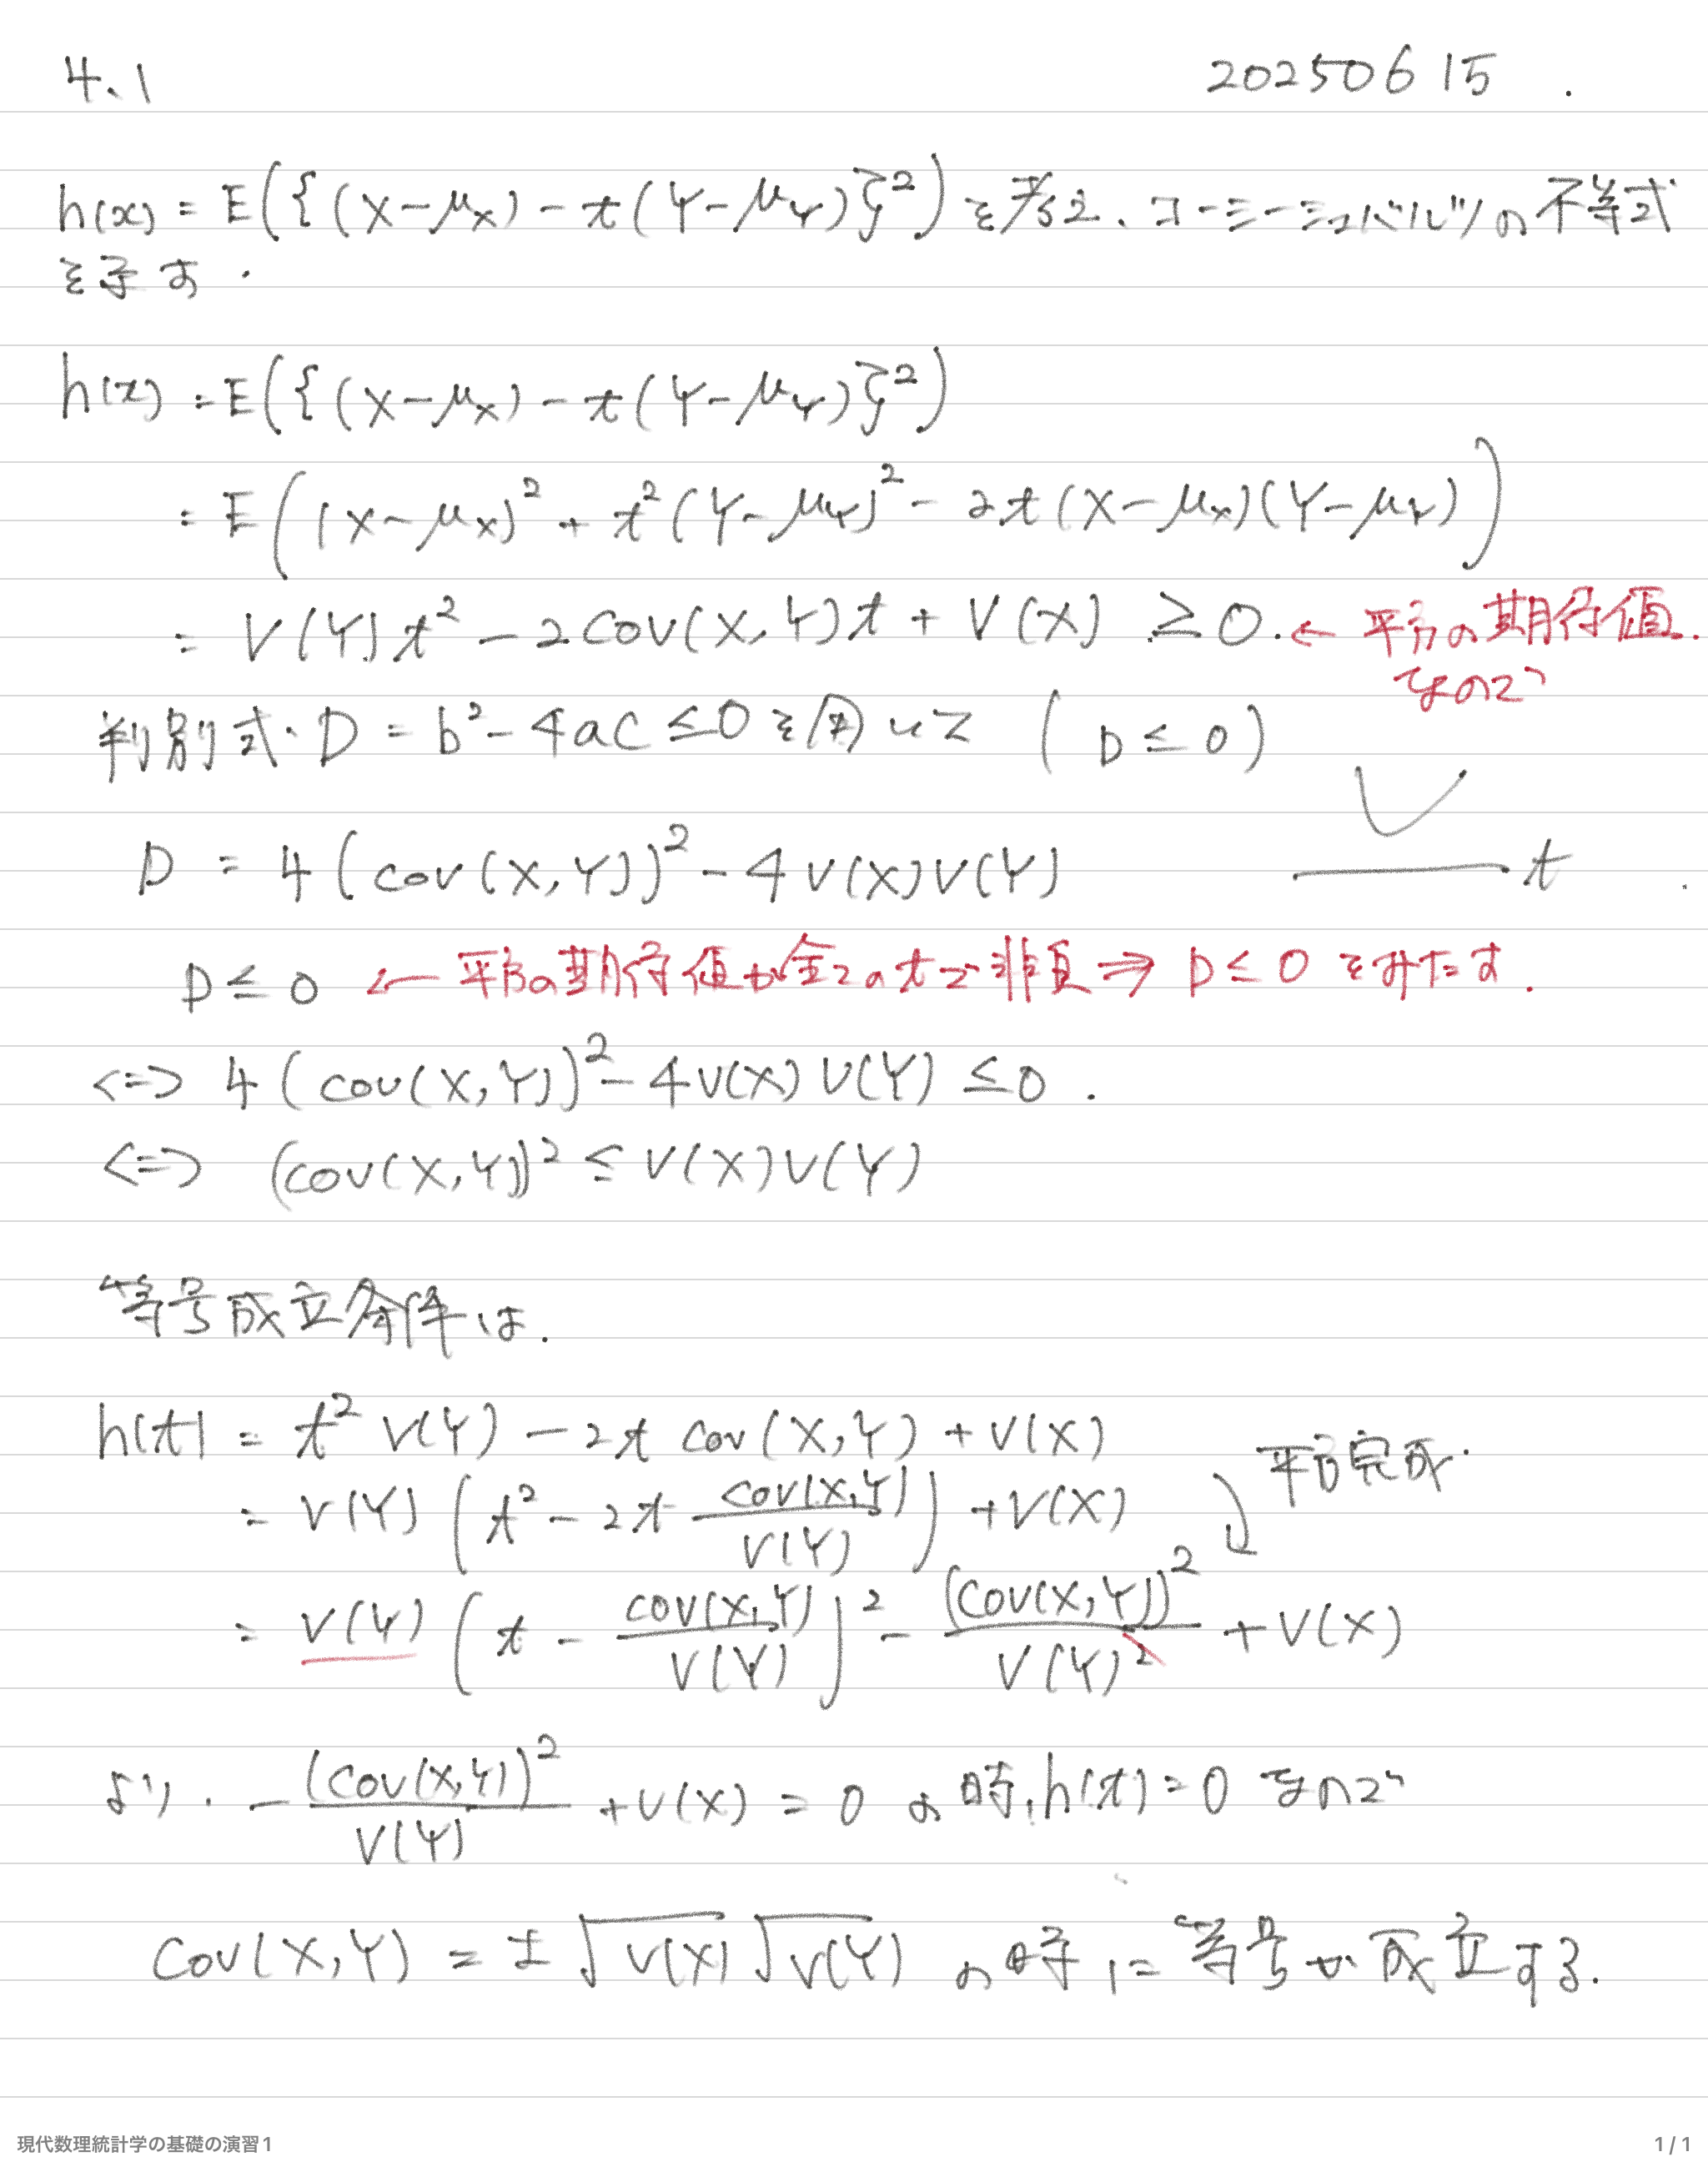 4.1 20250615.
h(x) = E({(X-μ_X) - t(Y-μ_Y)}²) を考え、コーシーシュバルツの不等式
を示す.
h(x) = E({(X-μ_X) - t(Y-μ_Y)}²)
= E((X-μ_X)² + t²(Y-μ_Y)² - 2t(X-μ_X)(Y-μ_Y))
= V(Y)t² - 2Cov(X,Y)t + V(X) ≥ 0. ← 平方の期待値.
なので
判別式. D = b² - 4ac ≤ 0 を用いて (D ≤ 0)
D = 4(cov(X,Y))² - 4V(X)V(Y) t
D ≤ 0 ← 平方の期待値が全てのtで非負 ⇒ D ≤ 0 をみたす.
<=> 4(cov(X,Y))² - 4V(X)V(Y) ≤ 0.
<=> (cov(X,Y))² ≤ V(X)V(Y)
等号成立条件は.
h(t) = t² V(Y) - 2t Cov(X,Y) + V(X)
= V(Y) (t² - 2t cov(X,Y)/V(Y)) + V(X) 平方完成.
= V(Y) (t - cov(X,Y)/V(Y))² - (Cov(X,Y))²/V(Y)² + V(X)
より. -(Cov(X,Y))²/V(Y) + V(X) = 0 の時, h(t) = 0 なので
Cov(X,Y) = ±√V(X) √V(Y) の時に等号が成立する.
現代数理統計学の基礎の演習1 1 / 1